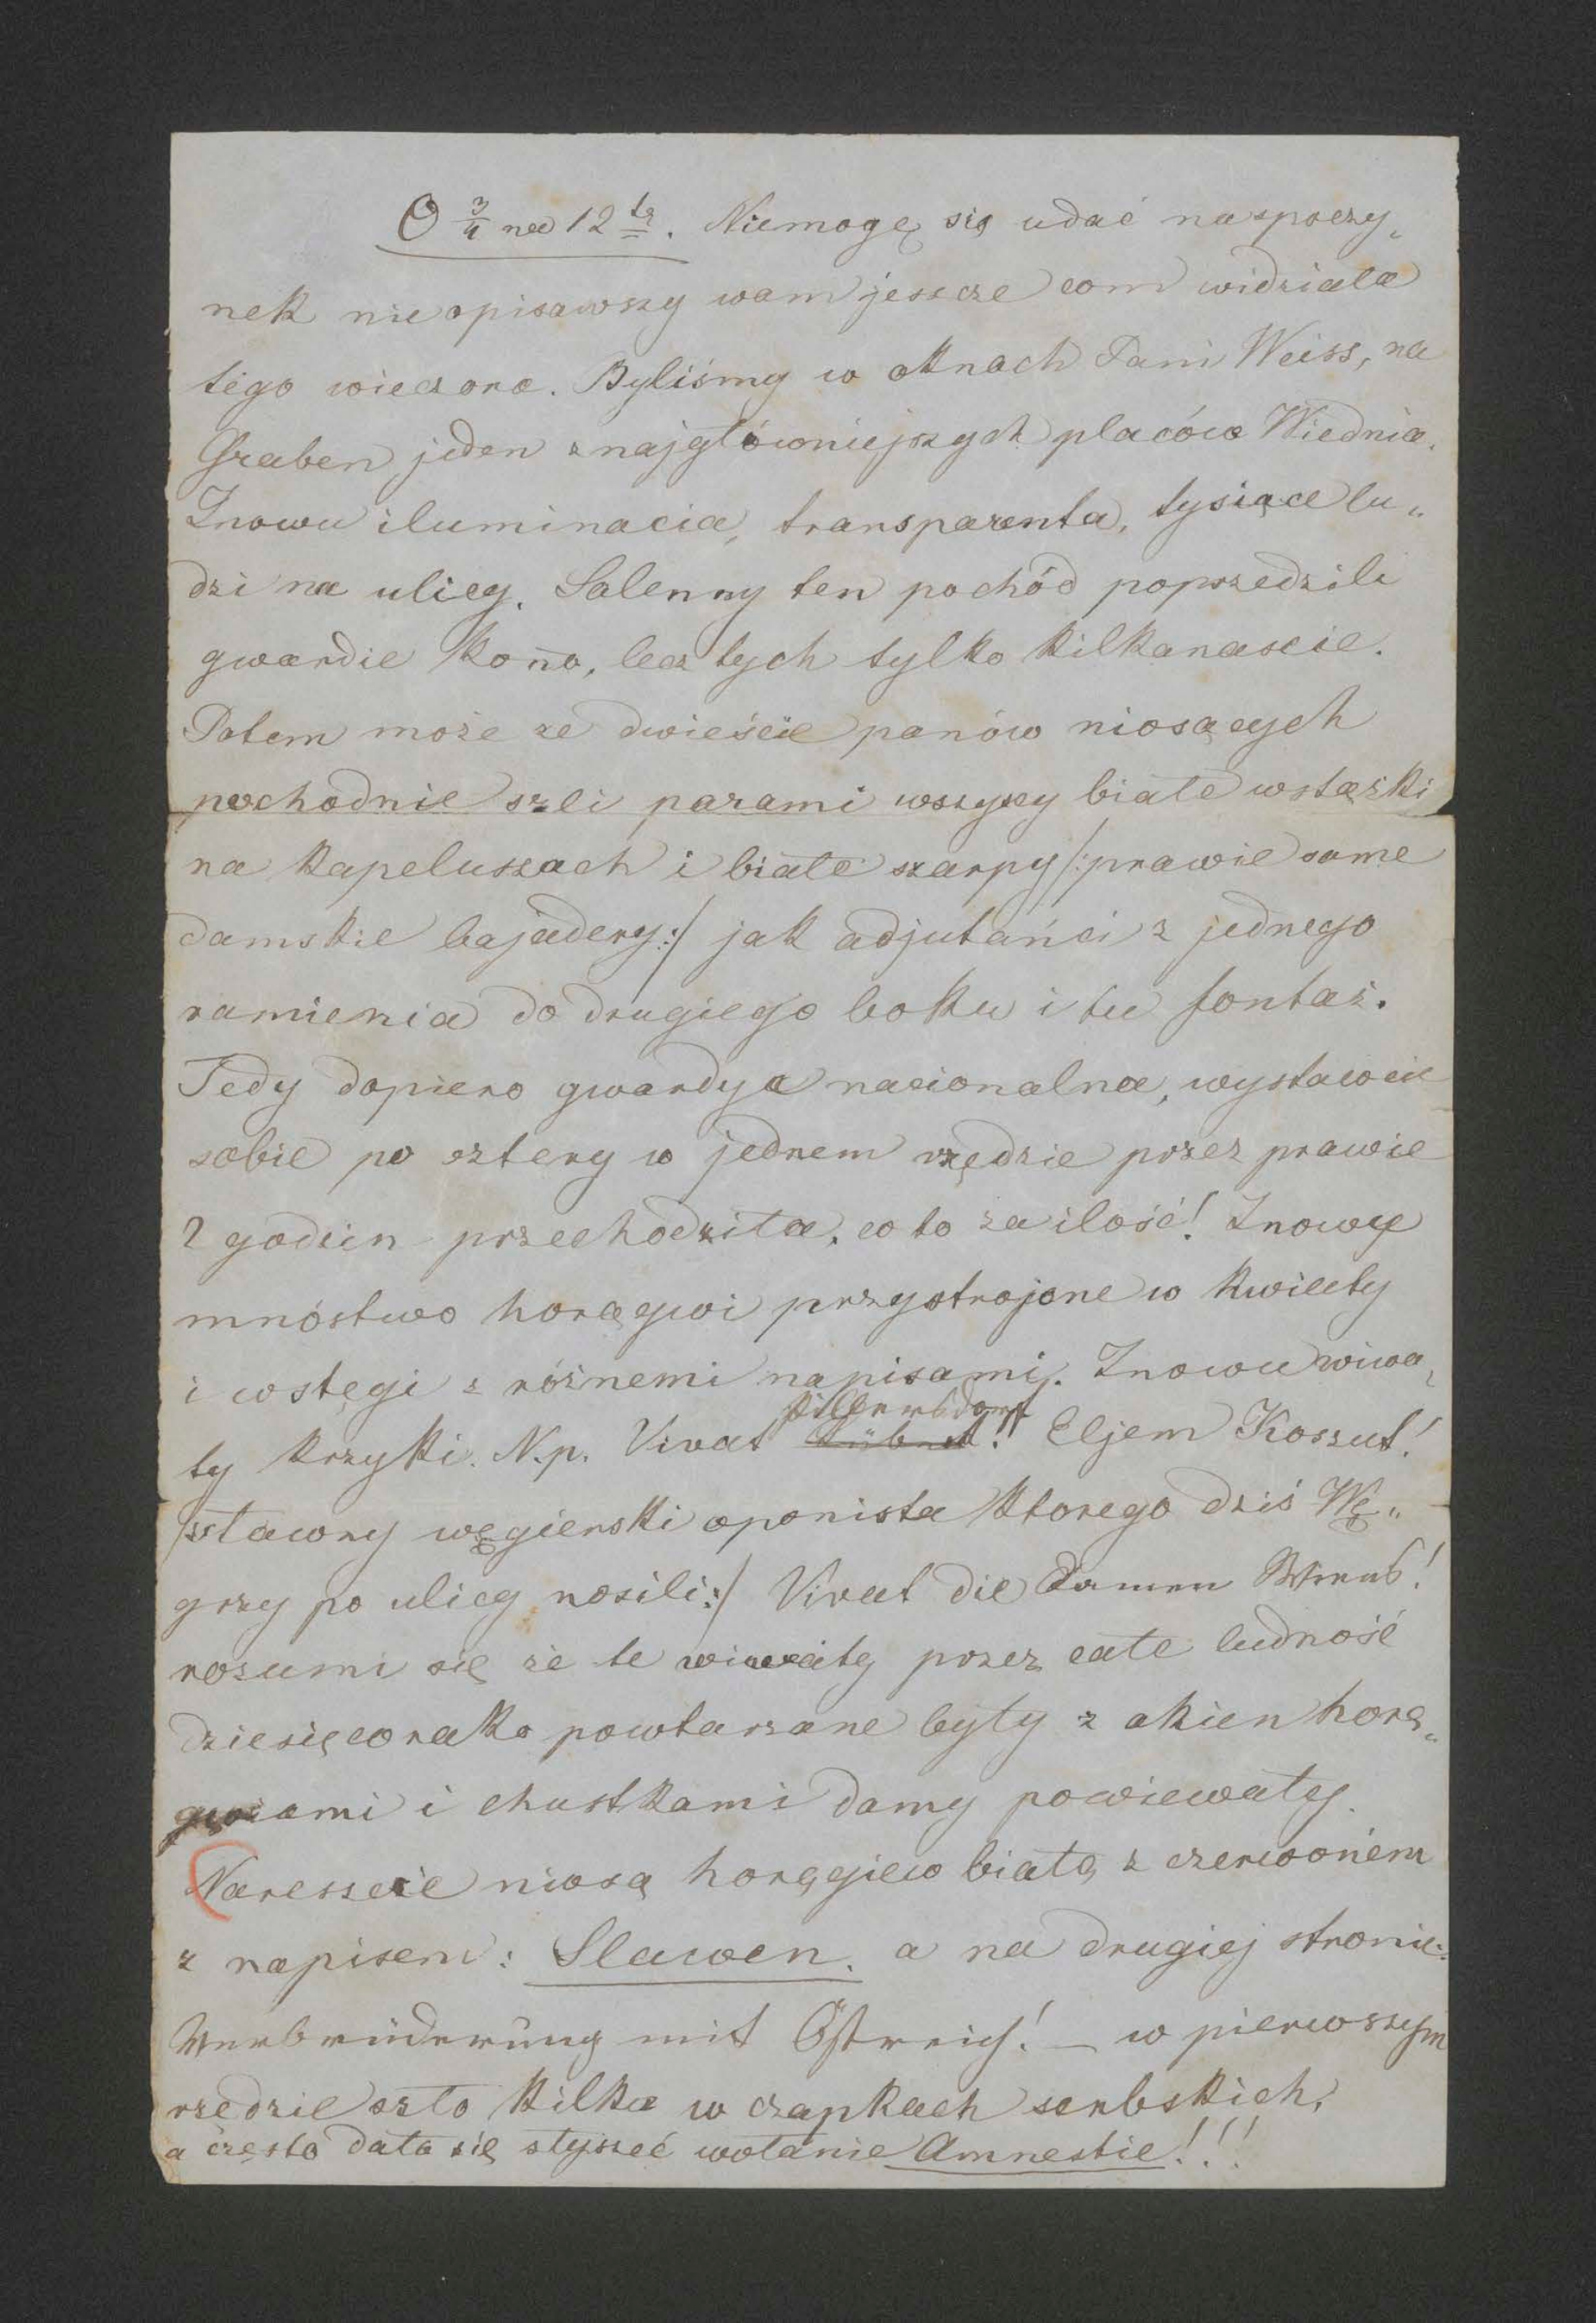 O 3/4 na 12tą. Niemogę się udać na spoczy„
nek nie opisawszy wam jeszcze com widziała
tego wieczora. Byliśmy w oknach Pani Weiss, na
Graben jeden z najgłówniejszych placów Wiednia.
Znowu iluminacia, transparenta, tysiące lu„
dzi na ulicy. Salenny ten pochód poprzedzili
gwardie kono, lecz tych tylko kilkanascie.
Potem może ze dwieście panów niosących
pochodnie szli parami wszyscy białe wstążki
na kapeluszach i białe szarpy /: prawie same
damskie bajadery :/ jak adjutańci z jednego
ramienia do drugiego boku i tu fontaź.
Tedy dopiero gwardya nacionalna, wystawcie
sobie po cztery w jednem rzędzie przez prawie
2 godzin przechodziła, co to za ilość! Znowu
mnóstwo horągwi przystrojone w kwiaty
i wstęgi z róźnemi napisami. Znowu wiwa„
ty krzyki. N.p. Vivat Pillersdorf!! Eljem Koszut!
/: sławny węgierski oponista ktorego dziś Wę„
grzy po ulicy nosili :/ Vivat die Damen Wiens!
rozumi się że te wiwaty przez całe ludność
dziesięcorako powtarzane były z okien horą„
gwiami i chustkami damy powiewały.
Nareszcie niosą horągiew białą z czerwonem
z napisem: Slawen. a na drugiej stronie:
Verbrüderung mit Östreich! – w pierwszym
rzedzie szło kilka w czapkach serbskich,
a często dało się słyszeć wołanie Amnestie!!!